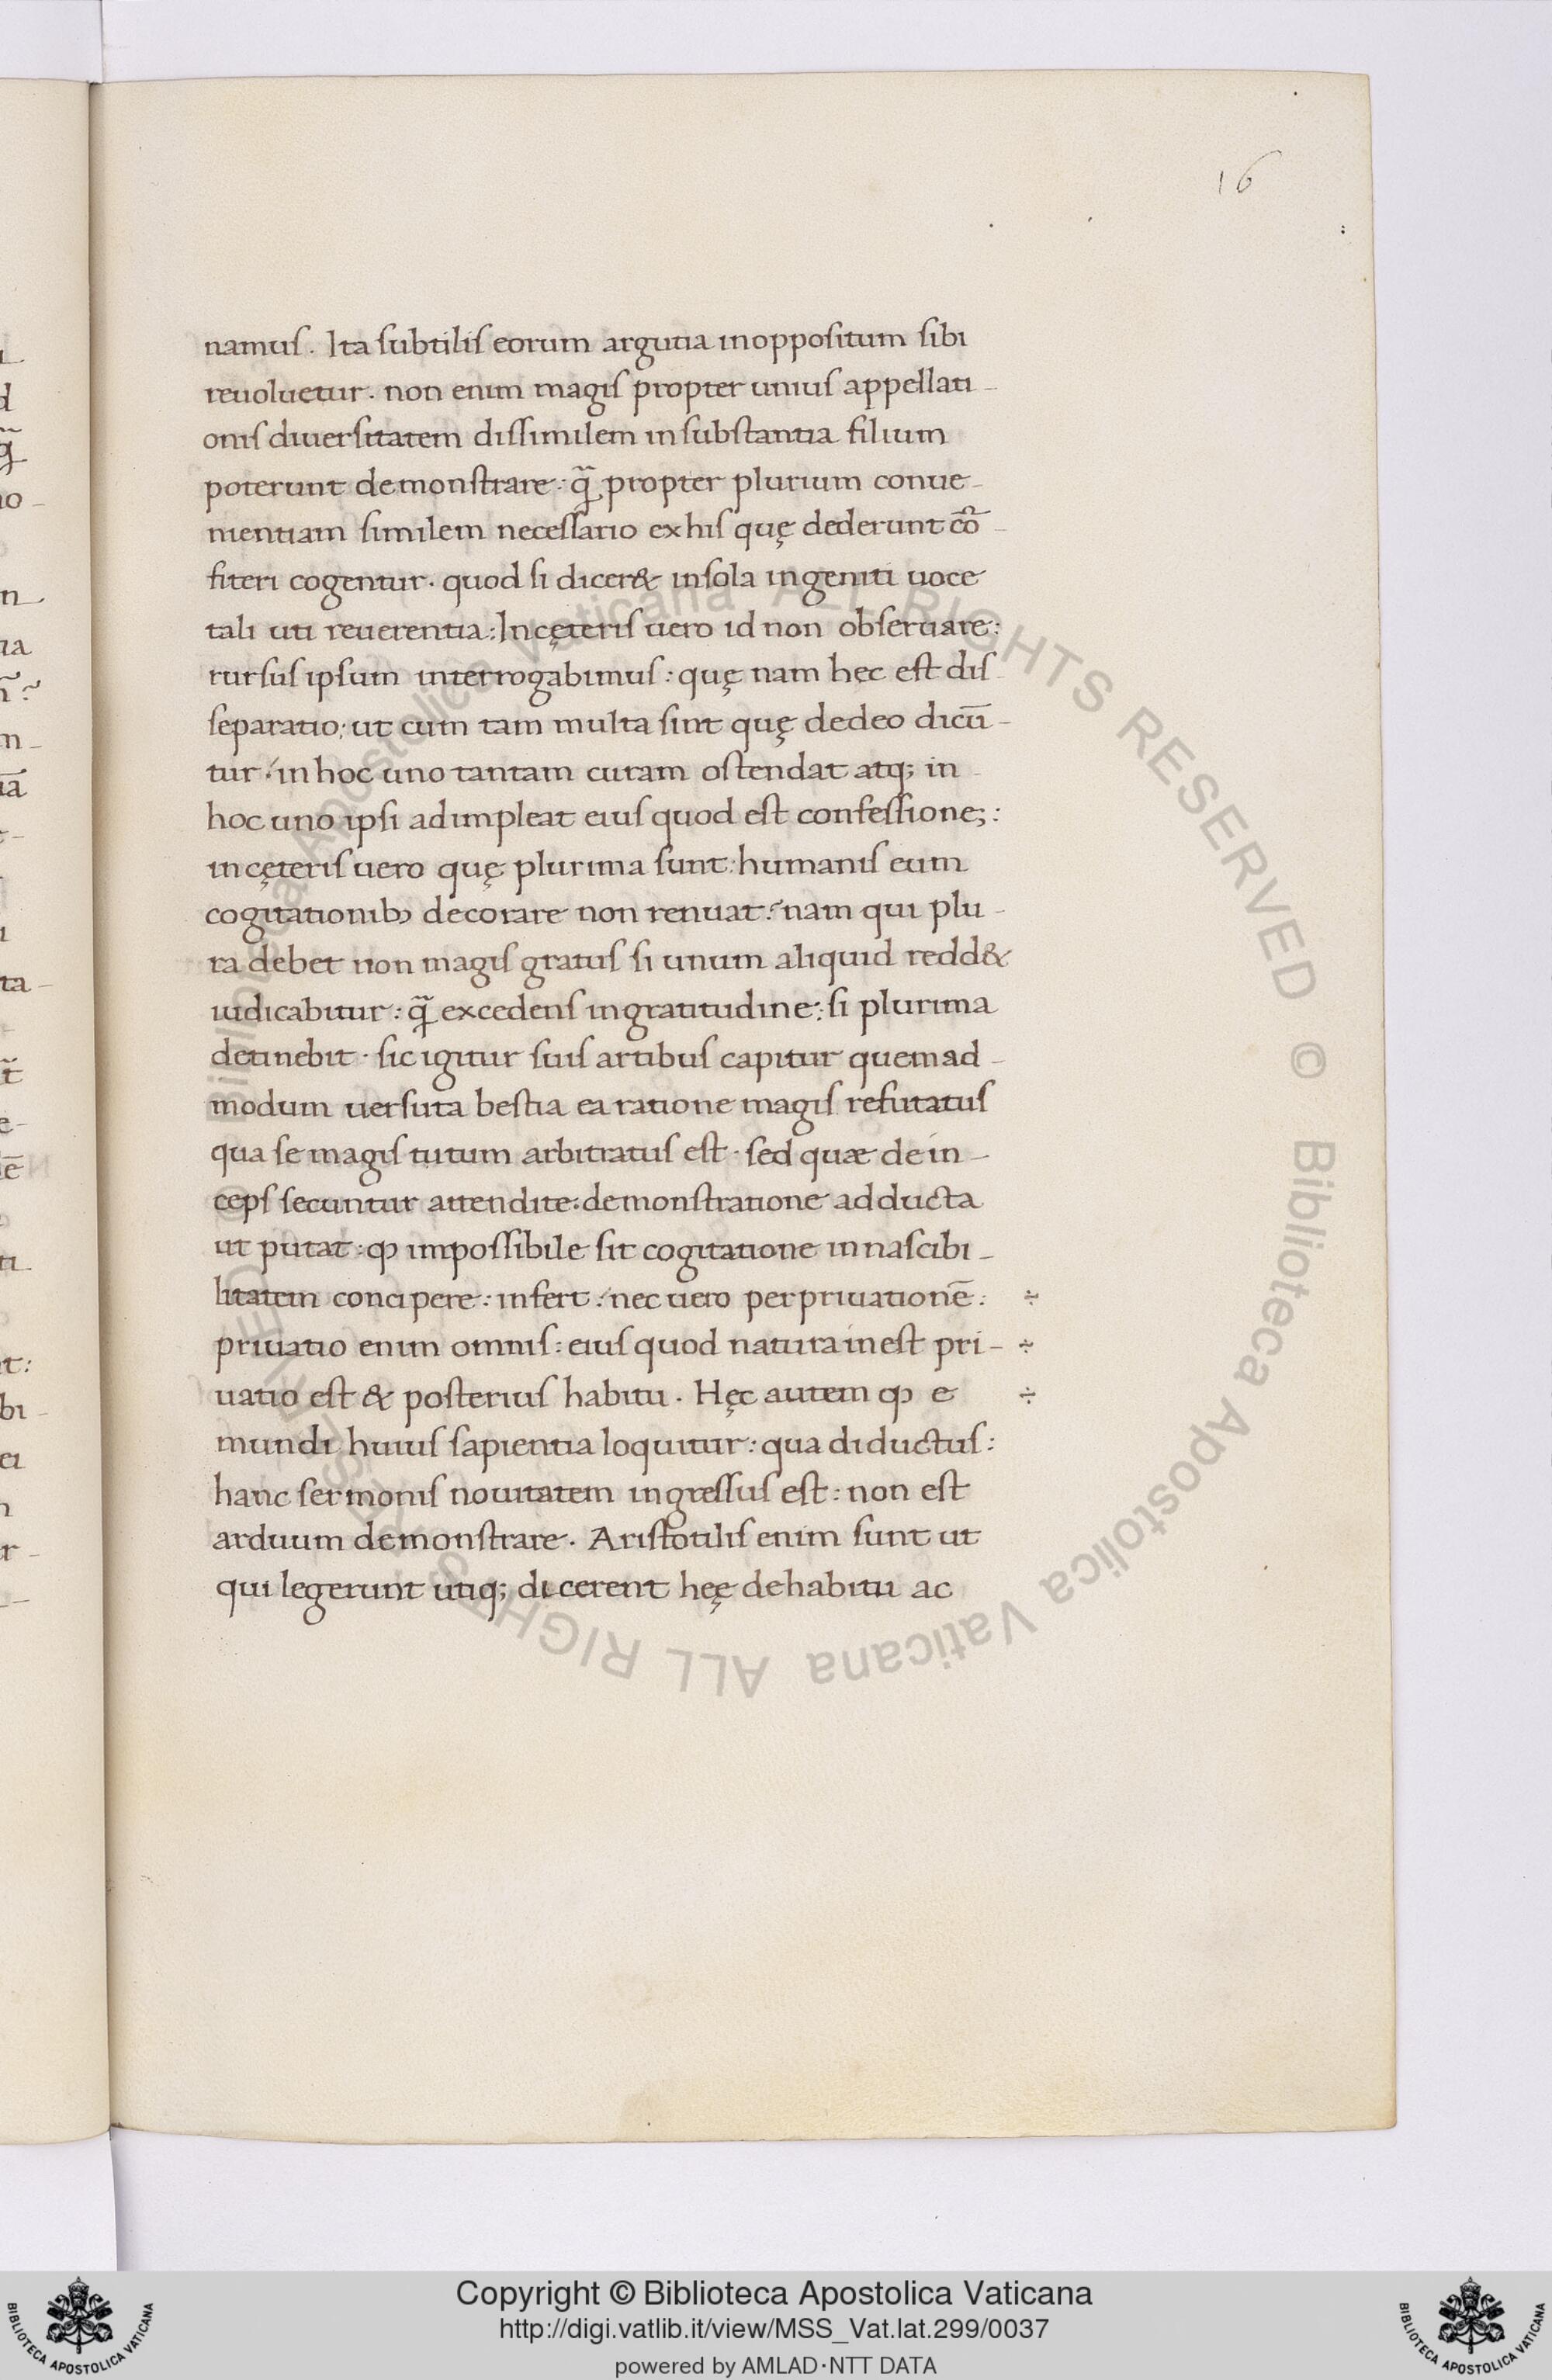 16
namus. Ita subtilis eorum argutia inoppositum sibi
reuoluetur. non enim magis propter unius appellati-
onis diuersitatem dissimilem insubstantia filium
poterunt demonstrare: q̃ propter plurium conue-
nientiam similem necessario exhis quę dederunt cõ-
fiteri cogentur. quod si dicer& insola ingeniti uoce
tali uti reuerentia: Incęteris uero id non obseruare:
rursus ipsum interrogabimus: quę nam hec est dis-
separatio; ut cum tam multa sint quę dedeo dicū-
tur: inhoc uno tantam curam ostendat atq; in-
hoc uno ipsi adimpleat eius quod est confessione;:
incęteris uero quę plurima sunt: humanis eum
cogitationib; decorare non renuat: nam qui plu-
ra debet non magis gratus si unum aliquid redd&
iudicabitur: q̃ excedens ingratitudine: si plurima
detinebit. sic igitur suis artibus capitur quemad-
modum uersuta bestia ea ratione magis refutatus
qua se magis tutum arbitratus est. sed quæ dein-
ceps secuntur attendite: demonstratione adducta
ut putat: qɔ impossibile sit cogitatione innascibi-
litatem concipere: infert: nec uero perpriuationē: ÷
priuatio enim omnis: eius quod natura inest pri- ÷
uatio est & posterius habitu. Hęc autem qɔ e ÷
mundi huius sapientia loquitur: qua diductus:
hanc sermonis nouitatem ingressus est: non est
arduum demonstrare. Aristotilis enim sunt ut
qui legerunt utiq; dicerent heę dehabitu ac
Copyright © Biblioteca Apostolica Vaticana
http://digi.vatlib.it/view/MSS_Vat.lat.299/0037
powered by AMLAD·NTT DATA